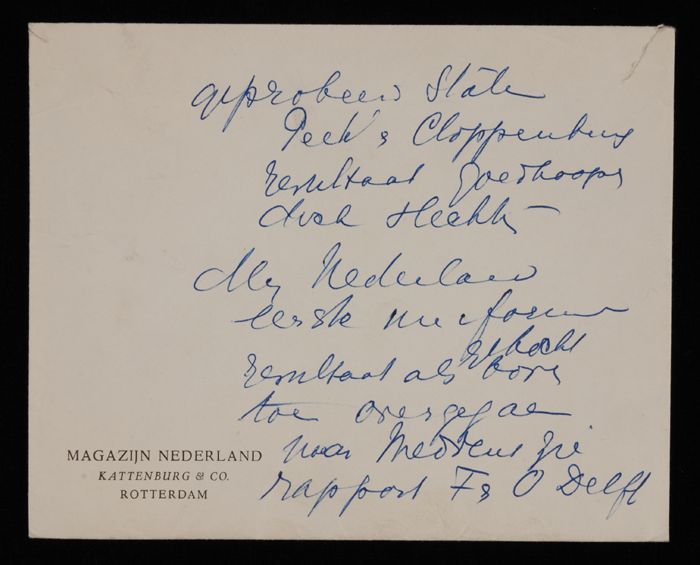 geprobeerd State
Peek & Cloppenburg
resultaat goedkoope
doch slecht
Mag Nederland
eerste uniform
verkocht
resultaat als boven
toe overgegaan
naar Mertens zie
rapport F & O Delft
MAGAZIJN NEDERLAND
KATTENBURG & CO.
ROTTERDAM